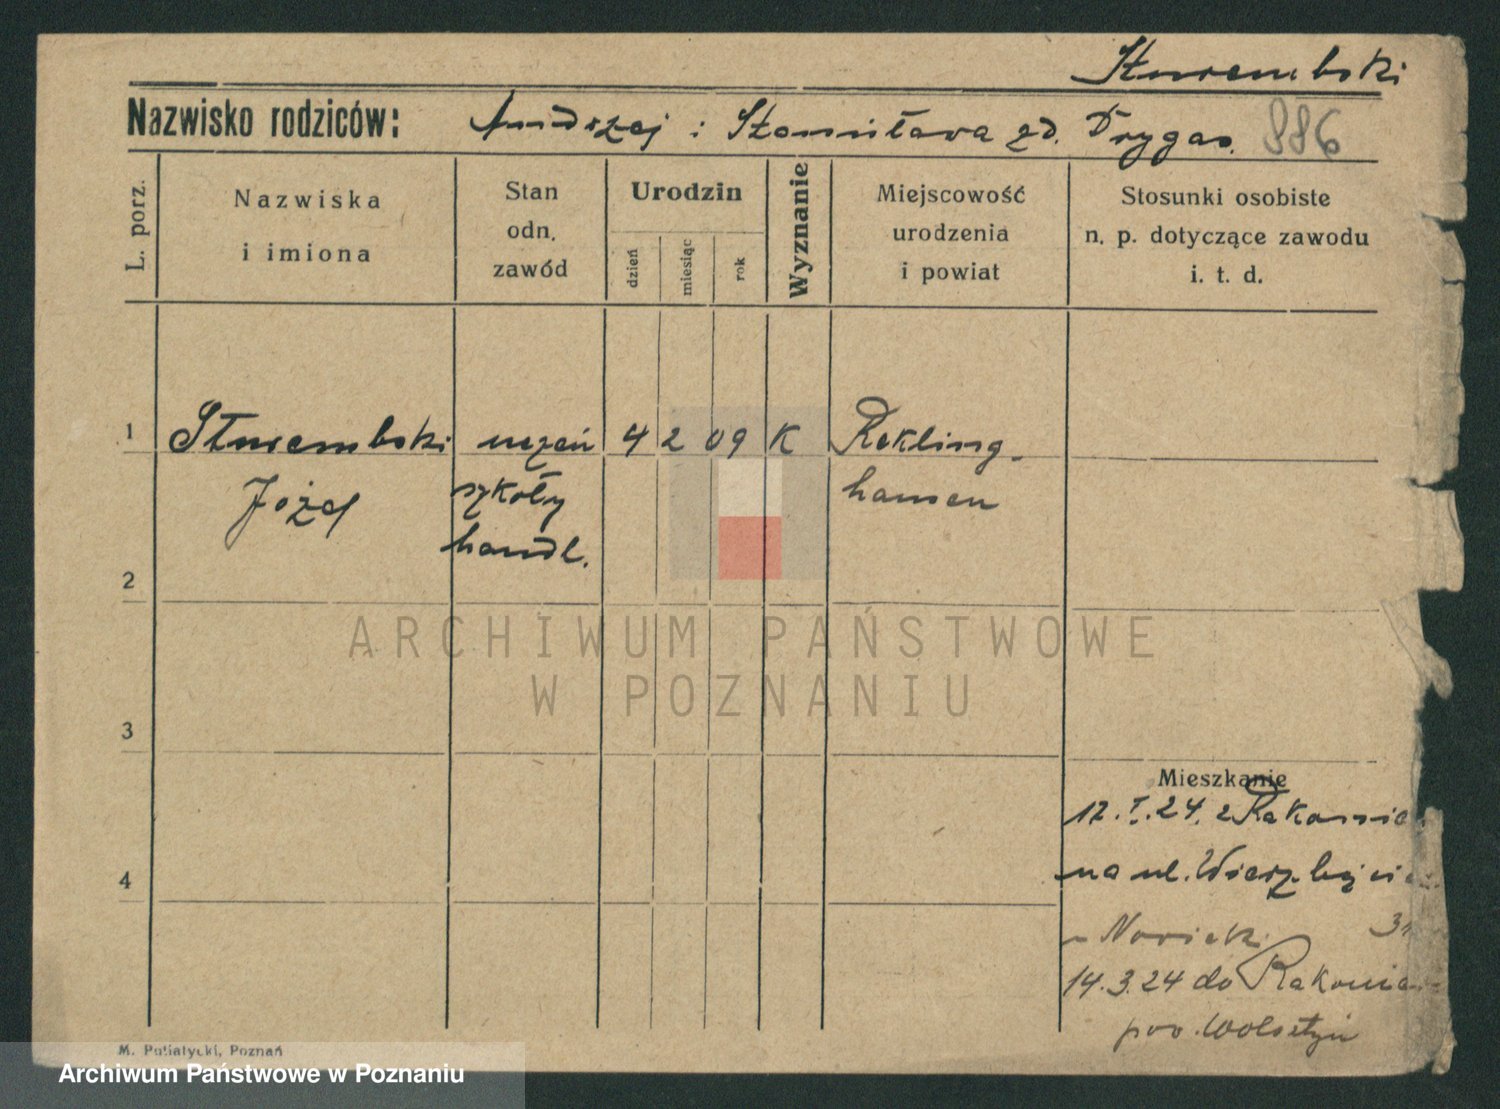 Nazwisko rodziców: Andrzej i Stanisława zd. Drygas. 886
L. porz.
Nazwiska
i imiona
Stan
odn.
zawód
Urodzin
dzień
miesiąc
rok
Wyznanie
Miejscowość
urodzenia
i powiat
Stosunki osobiste
n. p. dotyczące zawodu
i. t. d.
1 uczeń 4 2 09 K Rekling-
Józef szkoły hausen
handl.
2
ARCHIWUM PAŃSTWOWE
W POZNANIU
3
Mieszkanie
12.I.24. z
4 na ul.
14.3.24 do
pow. Wolsztyn
M. Putiatycki, Poznań
Archiwum Państwowe w Poznaniu